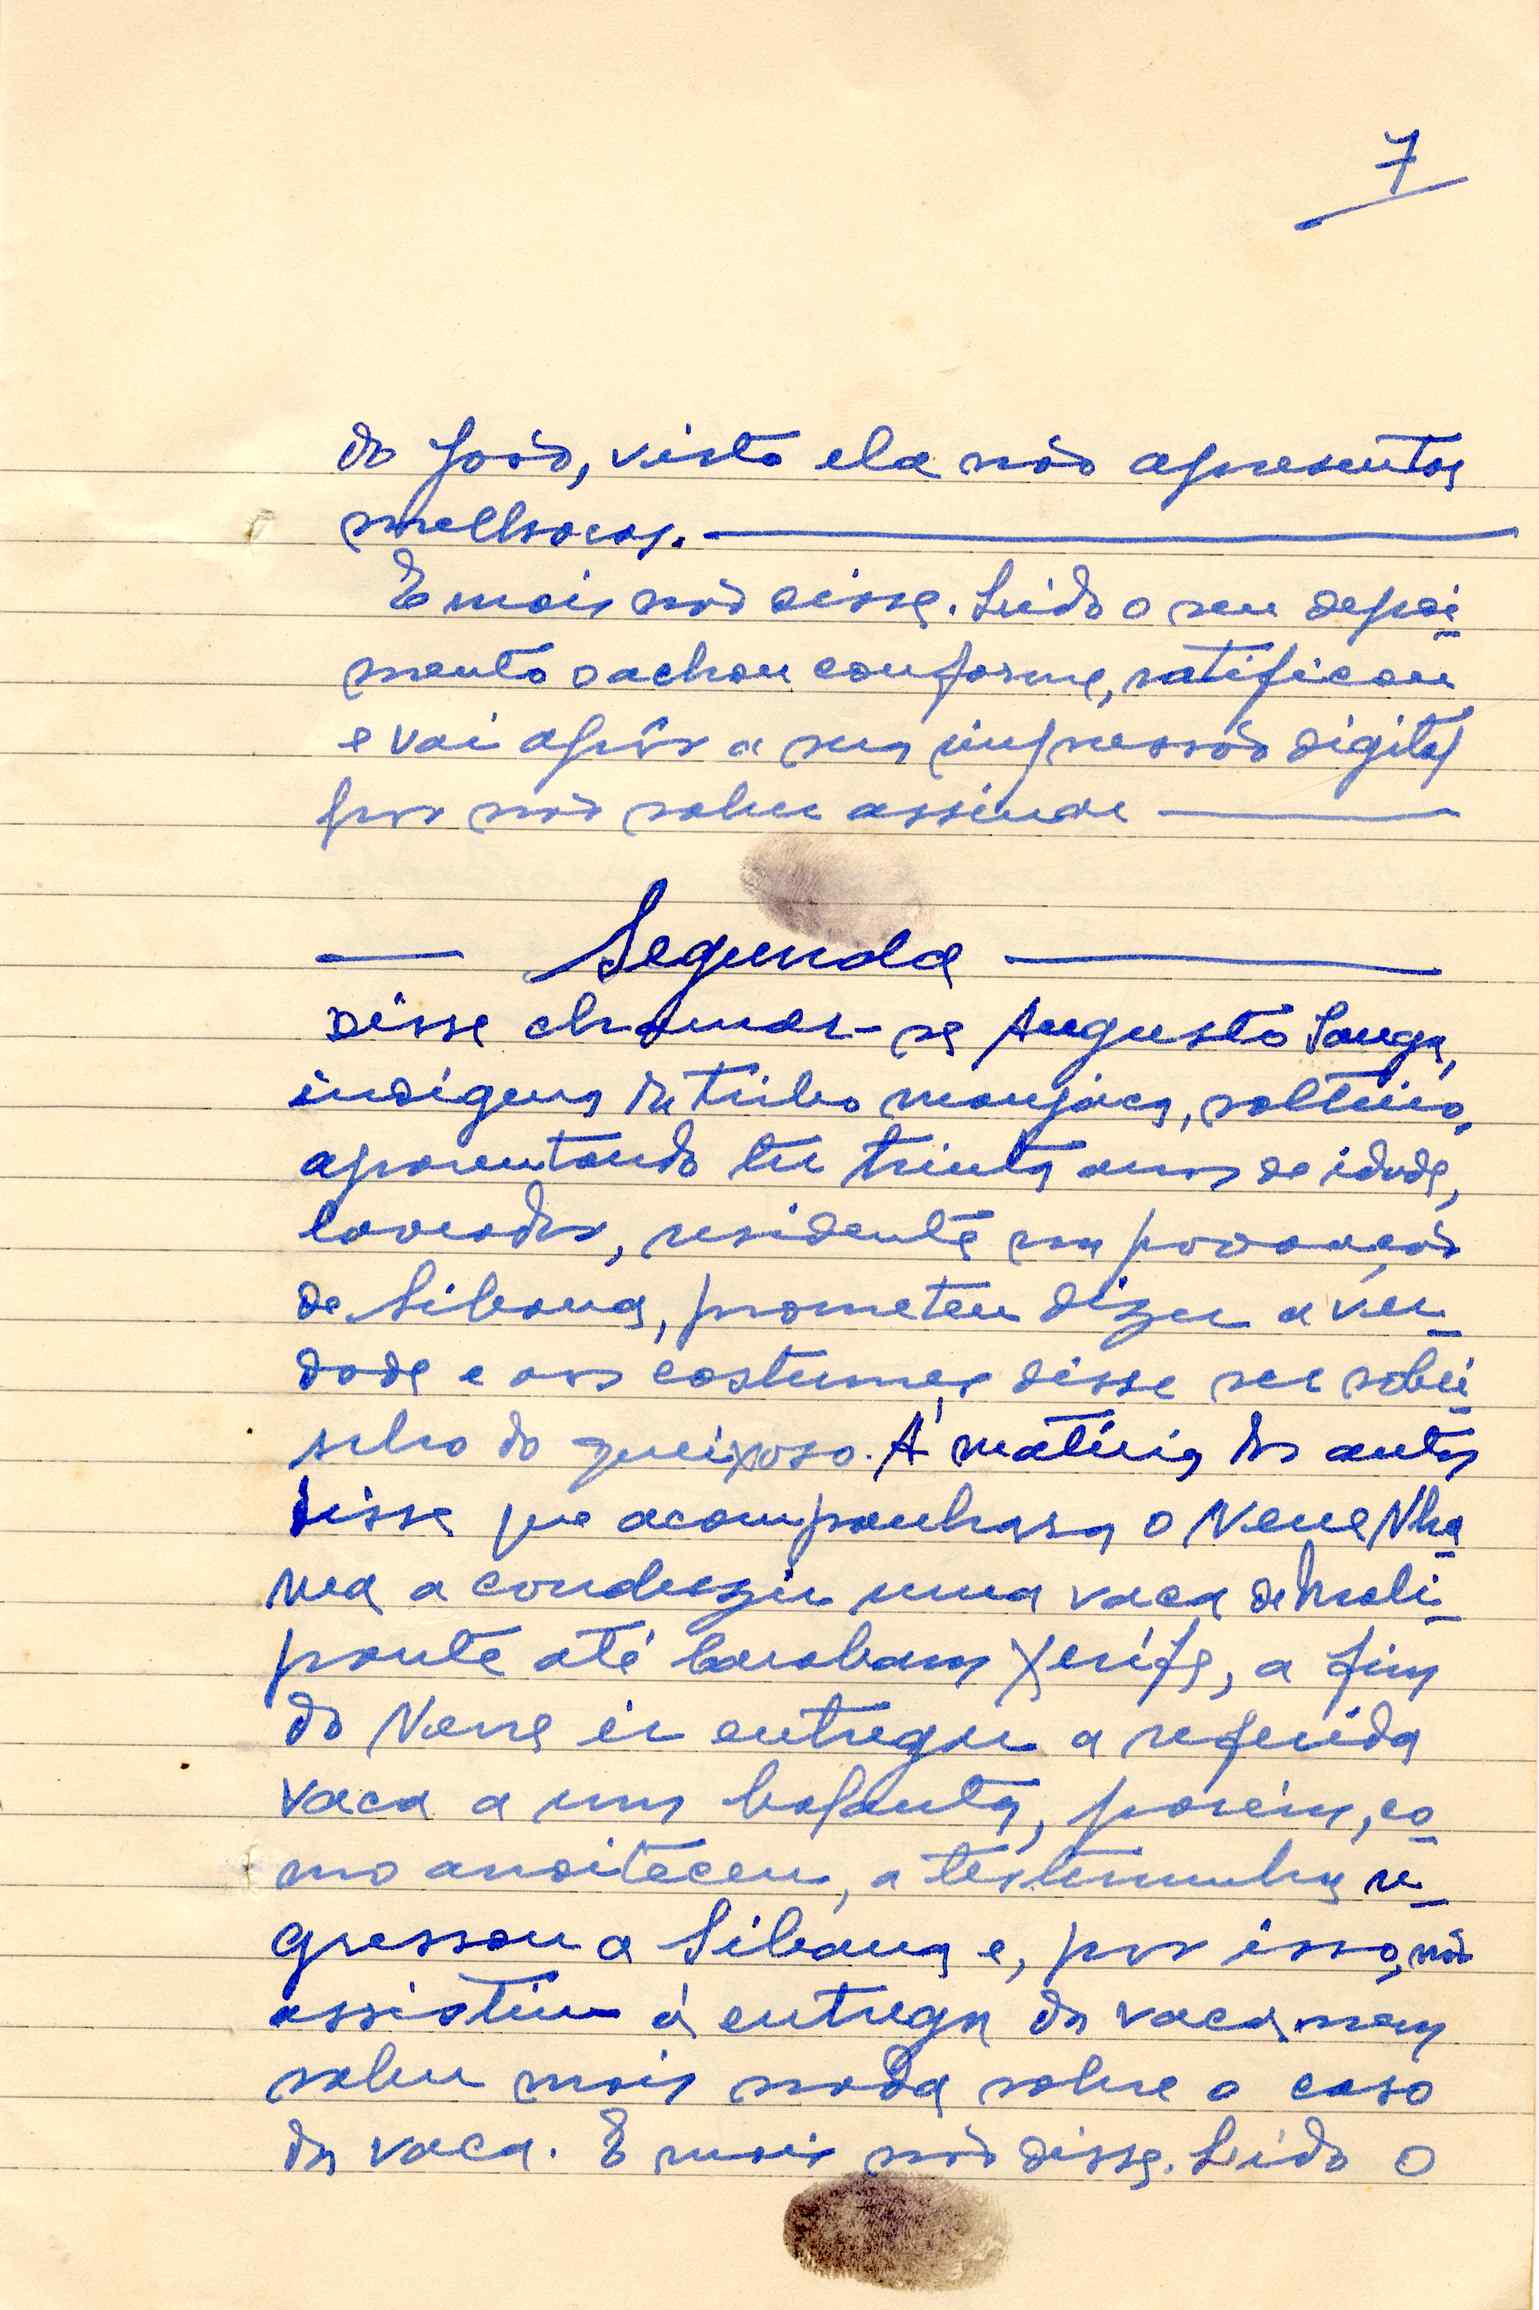 7
do João, visto ela não apresentar
melhoras.
E mais não disse. Lido o seu depoi-
mento o achou conforme, ratificou
e vai apôr a sua impressão digital
por não saber assinar
Segunda
Disse chamar-se Augusto Sanga,
indígena da tribo manjaca, solteiro,
aparentando ter trinta anos de idade,
lavrador, residente na povoação
de Sibana, prometeu dizer a ver-
dade e aos costumes disse ser sobri-
nho do queixoso. Á matéria dos autos
disse que acompanhara o Nene Nha
nea a conduzir uma vaca de
ponte até Xerife, a fim
do Nene ir entregar a referida
vaca a um bafanta, porém, co-
mo anoiteceu, a testemunha re-
gressou a Sibana e, por isso, não
assistiu á entrega da vaca, nem
sabe mais nada sobre o caso
da vaca. E mais não disse. Lido o